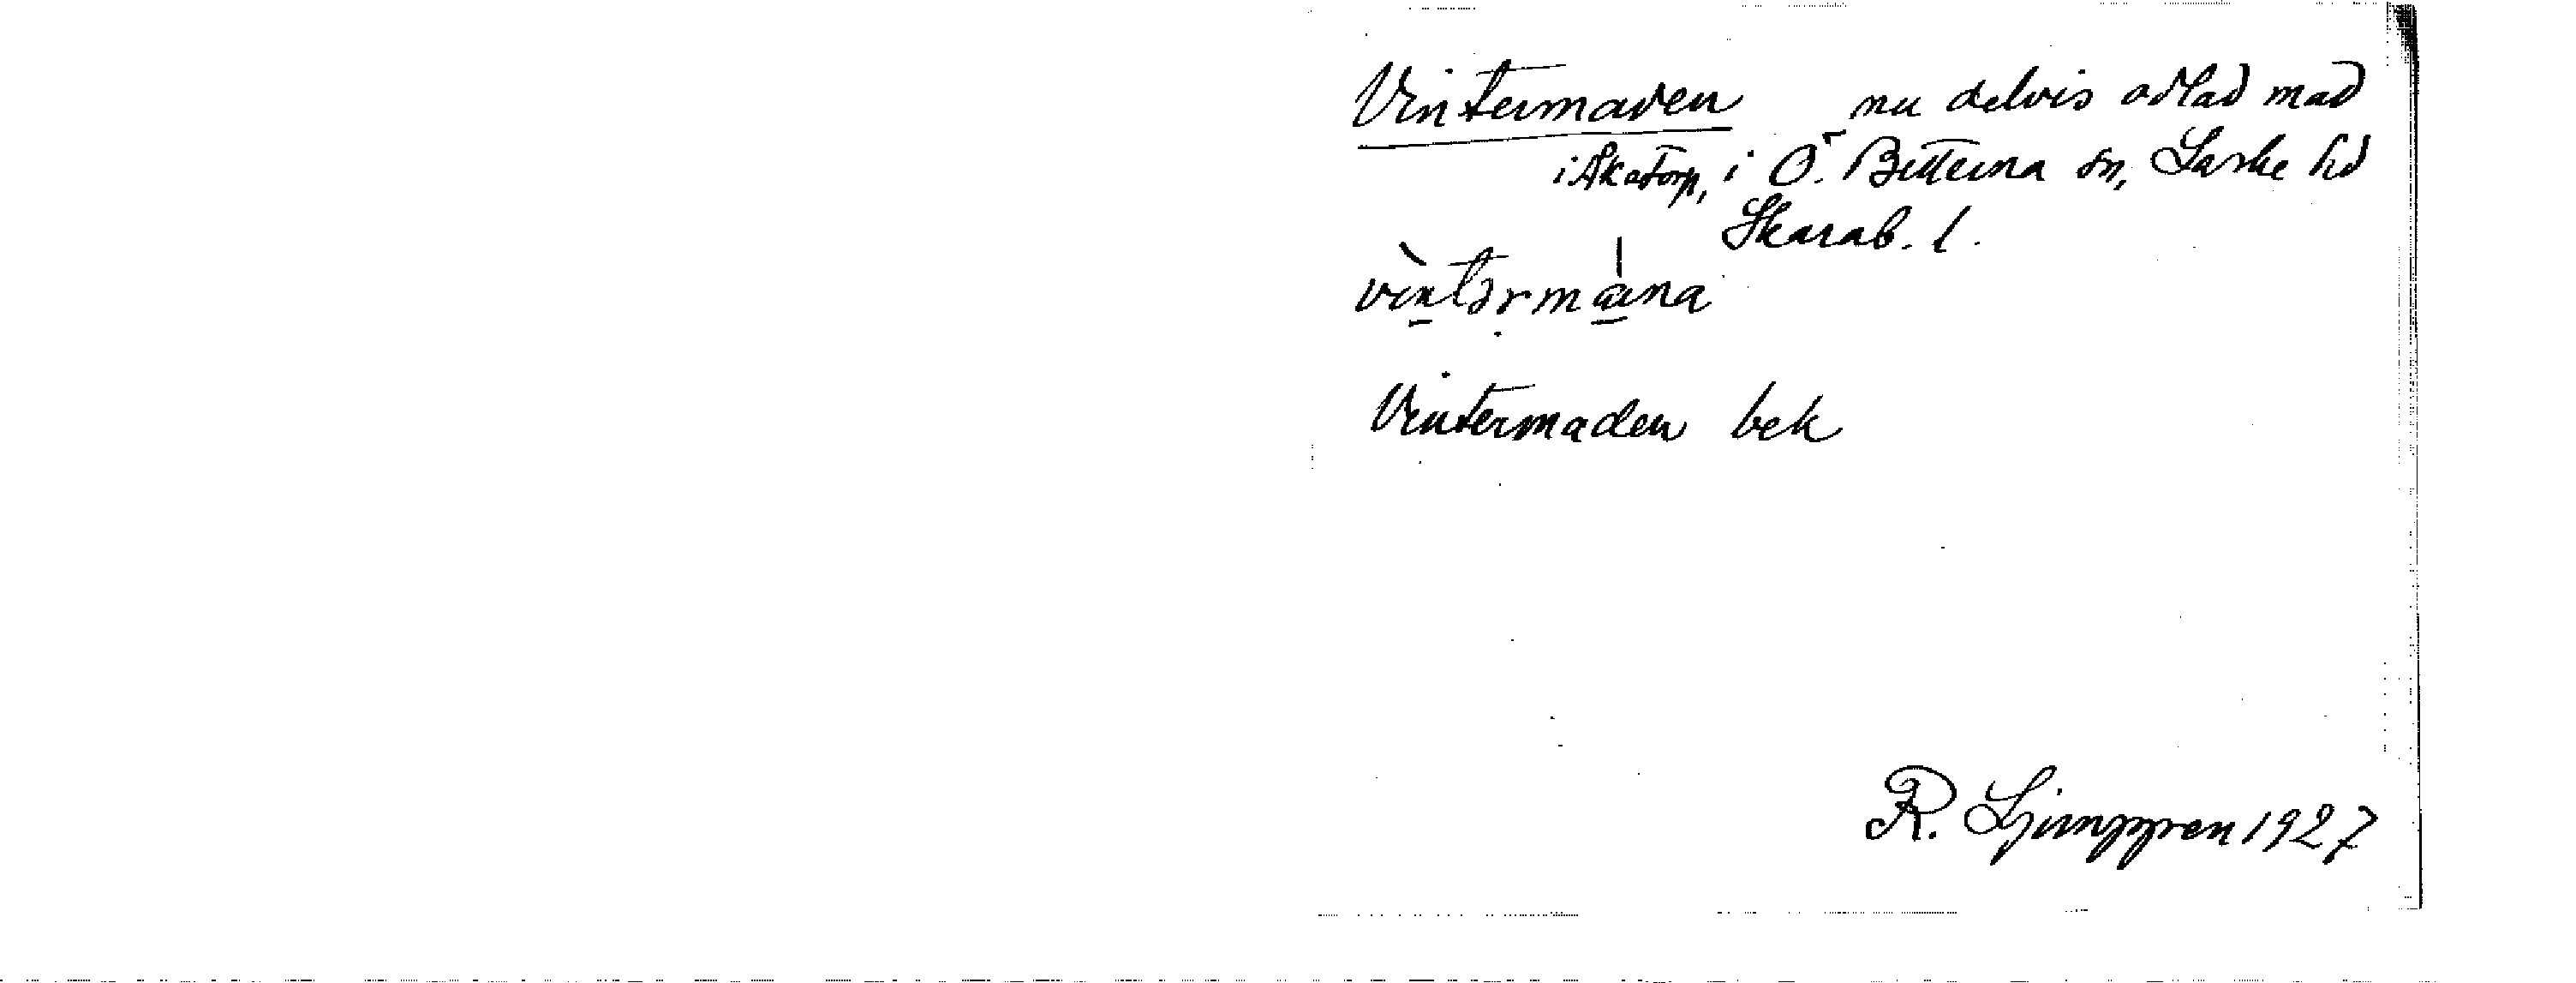 Vintermaden nu delvis odlad mad
i Åkatorp, i Ö. Bitterna sn, Laske hd
Skarab. l.
vìntərmana
Vintermaden bek
R. Ljunggren 1927